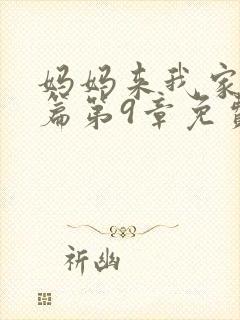 妈妈来我家
篇第9章免费
祈幽